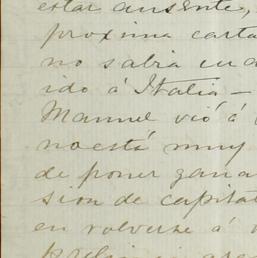 estar ausente,
proxima carta
no sabra
ido á Italia —
Manuel vió á
no está muy
de poner gana
sion de capita
en volverse á